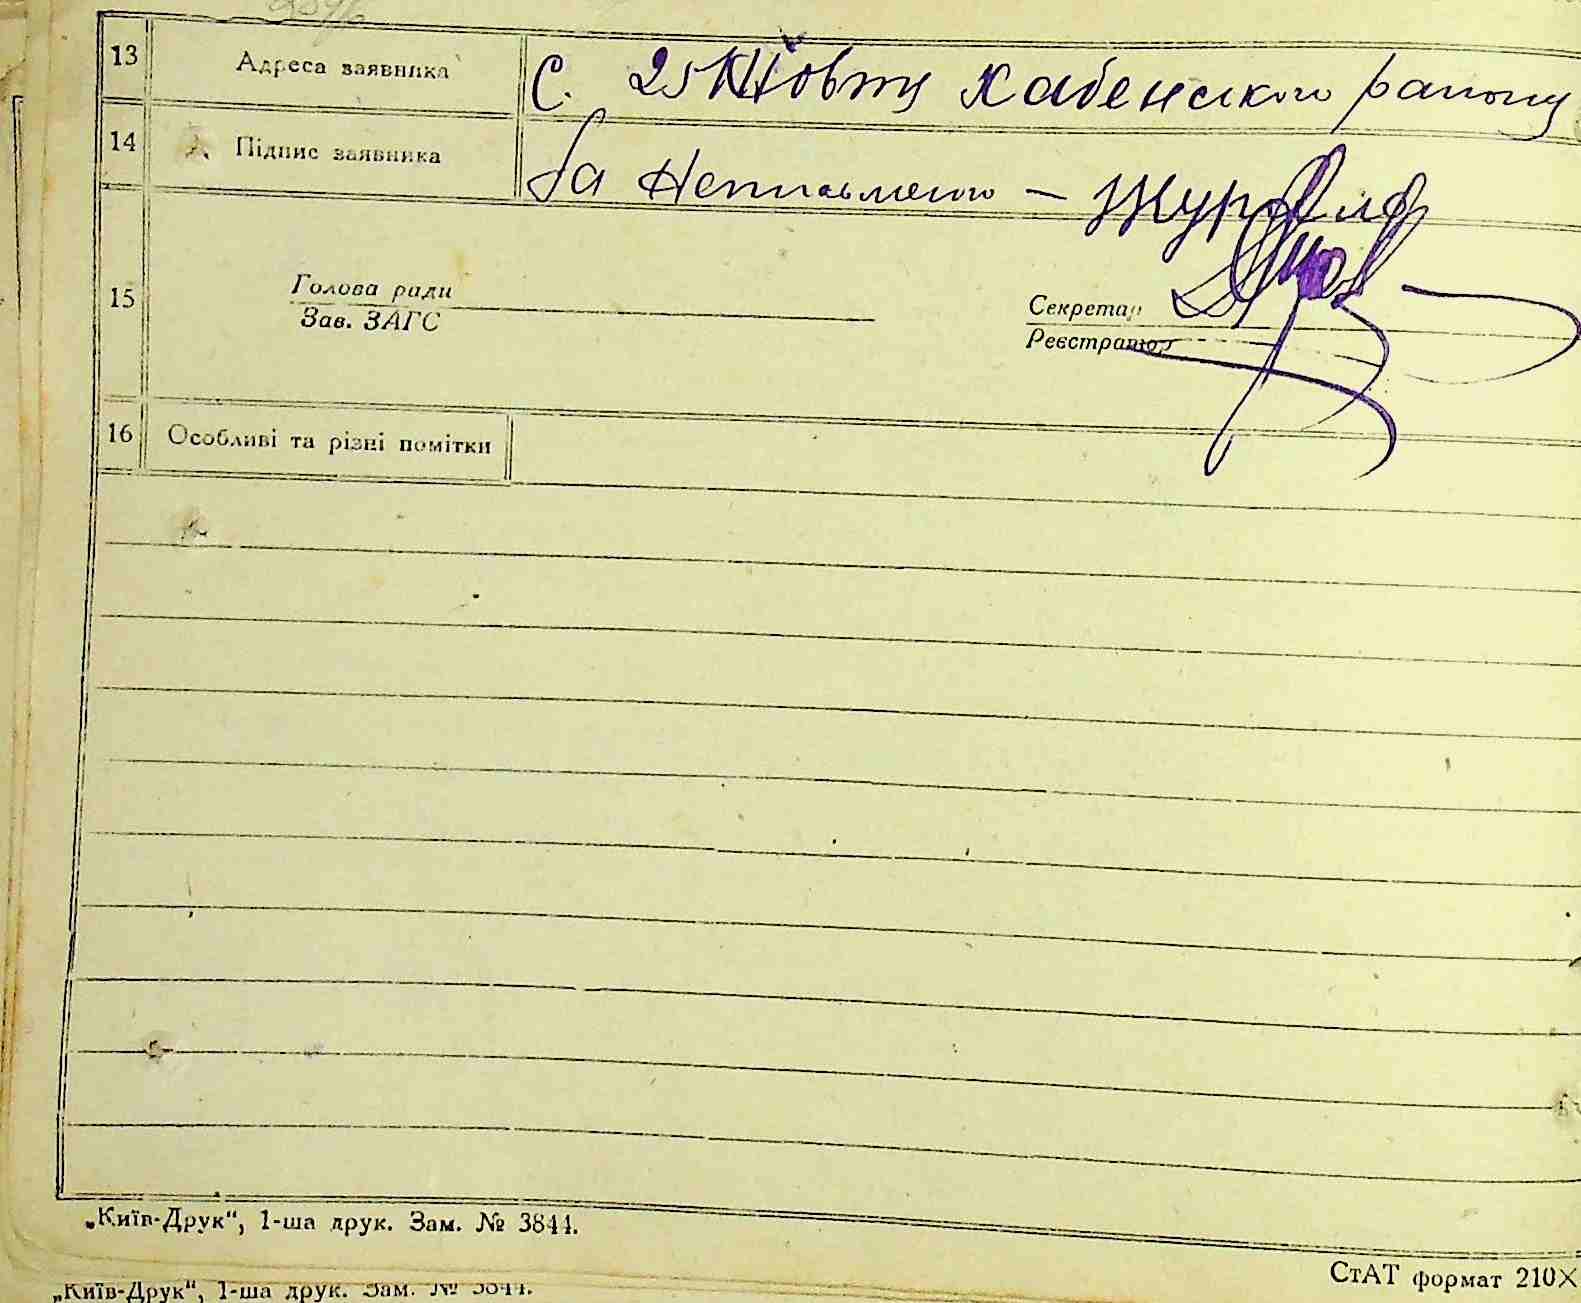 13 Адреса заявника С. 25 Жовтн Хабенского району
14 Підпис заявника За Неписьменого — Жур
15 Голова ради Секретар
Зав. ЗАГС Реєстратор
16 Особливі та різні помітки
„Київ-Друк“, 1-ша друк. Зам. № 3844.
СтАТ формат 210×
„Київ-Друк“, 1-ша друк. Зам. № 3844.